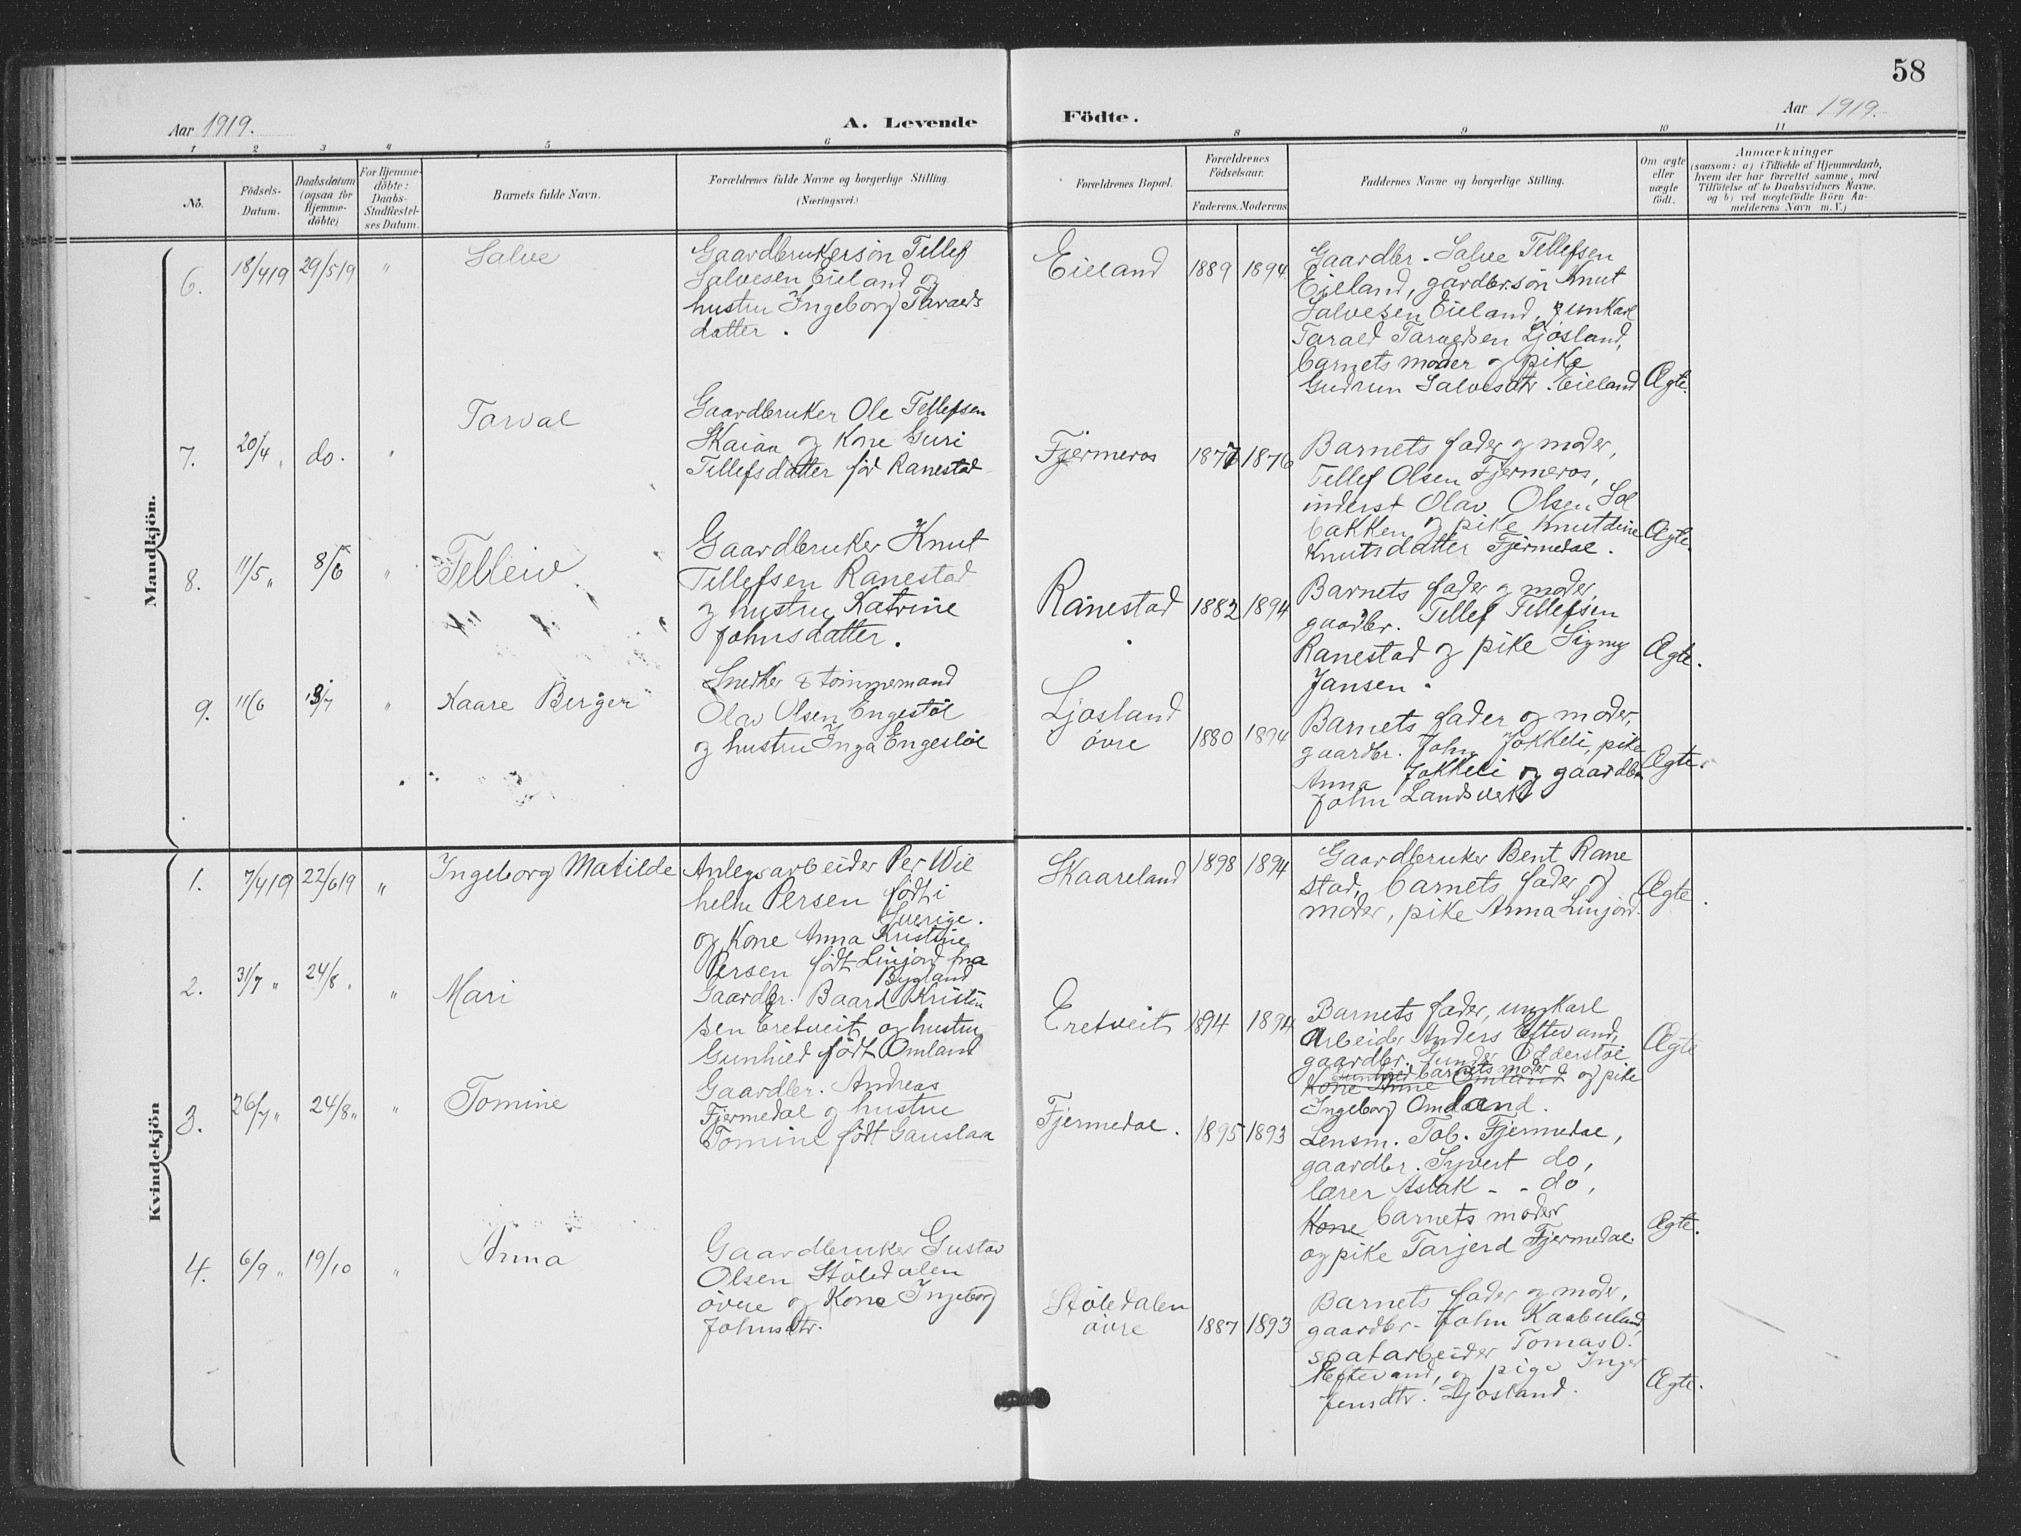 58
Aar 1919.
A. Levende Födte.
Aar 1919.
1 2 3 4 5 6 8 9 10 11
No.
Födsels-Datum.
Daabsdatum (ogsaa for Hjemme-döbte)
For Hjemme-döbte: Daabs-Stadfæstel-ses Datum.
Barnets fulde Navn.
Forældrenes fulde Navne og borgerlige Stilling.
(Næringsvei.)
Forældrenes Bopæl.
Forældrenes Födselsaar.
Faderens. Moderens
Faddernes Navne og borgerlige Stilling.
Om ægte eller uægte födt.
Anmærkninger
(saasom: a) i Tilfælde af Hjemmedaab,
hvem der har forrettet samme, med
Tilföielse af to Daabsvidners Navne.
og b) ved uægtefödte Börn An-
melderens Navn m. V.)
Mandkjön.
6. 18/4 19 29/5 19 " Salve
Gaardbrukersön Tellef
Salvesen Eieland og
hustru Ingeborg Taralds
datter.
Eieland 1889 1894
Gaardbr. Salve Tellefsen
Eieland, gårdbr.sön Knut
Salvesen Eieland, unkarl
Tarald Taraldsen Ljosland,
barnets moder og pike
Gudrun Salvesdtr. Eieland Ægte.
7. 20/4 " do. " Torval
Gaardbruker Ole Tellefsen
Skaiaa og kone Guri
Tellefsdatter föd Ranestad
Fjermeros 1877 1876
Barnets fader og moder,
Tellef Olsen Fjermeros,
inderst Olav Olsen Sol
bakken og pike Knutdine
Knutsdatter Fjermedal. Ægte.
8. 11/5 " 8/6 " Telleiv
Gaardbruker Knut
Tellefsen Ranestad
og hustru Katrine
Johnsdatter.
Ranestad 1882 1894
Barnets fader og moder,
gaardbr. Tellef Tellefsen
Ranestad og pike Signy
Jansen. Ægte.
9. 11/6 13/7 " Kaare Berger
Snedker & tömmermand
Olav Olsen Engestöl
og hustru Inga Engestöl
Ljosland
övre 1880 1894
Barnets fader og moder,
gaardbr. John Jokkeli, pike
Anna Jokkeli og gaardbr.
John Landsverk Ægte.
Kvindekjön
1. 7/4 19 22/6 19 " Ingeborg Matilde
Anlegsarbeider Per Wil
helm Persen födt i
Sverige.
og kone Anna Kristine
Persen födt Linjord fra
Bygland
Skaareland 1898 1894
Gaardbruker Bent Rane
stad, barnets fader og
moder, pike Anna Linjord. Ægte.
2. 31/7 " 24/8 " " Mari
Gaardbr. Baard Kristen
sen Eretveit og hustru
Gunhild födt Omland
Eretveit 1894 1894
Barnets fader, unkarl
arbeider Anders Eftevand,
gaardbr. Gunder Odderstöl
Gunhild barnets moder
Kone Anne Omland og pike
Ingeborg Omland. Ægte
3. 26/7 " 24/8 " " Tomine
Gaardbr. Andreas
Fjermedal og hustru
Tomine födt Gauslaa
Fjermedal. 1895 1893
Lensm. Tob. Fjermedal,
gaardbr. Syvert do,
lærer Aslak - - do,
Kone barnets moder
og pike Tarjerd Fjermedal Ægte.
4. 6/9 " 19/10 " Anna
Gaardbruker Gustav
Olsen Stöledalen
övre og Kone Ingeborg
Johnsdtr.
Stöledalen
övre 1887 1893
Barnets fader og moder,
gaardbr. John Kaabuland,
spatarbeider Tomas O.
Eftevand, og pige Inger
Jensdtr. Ljosland. Ægte.